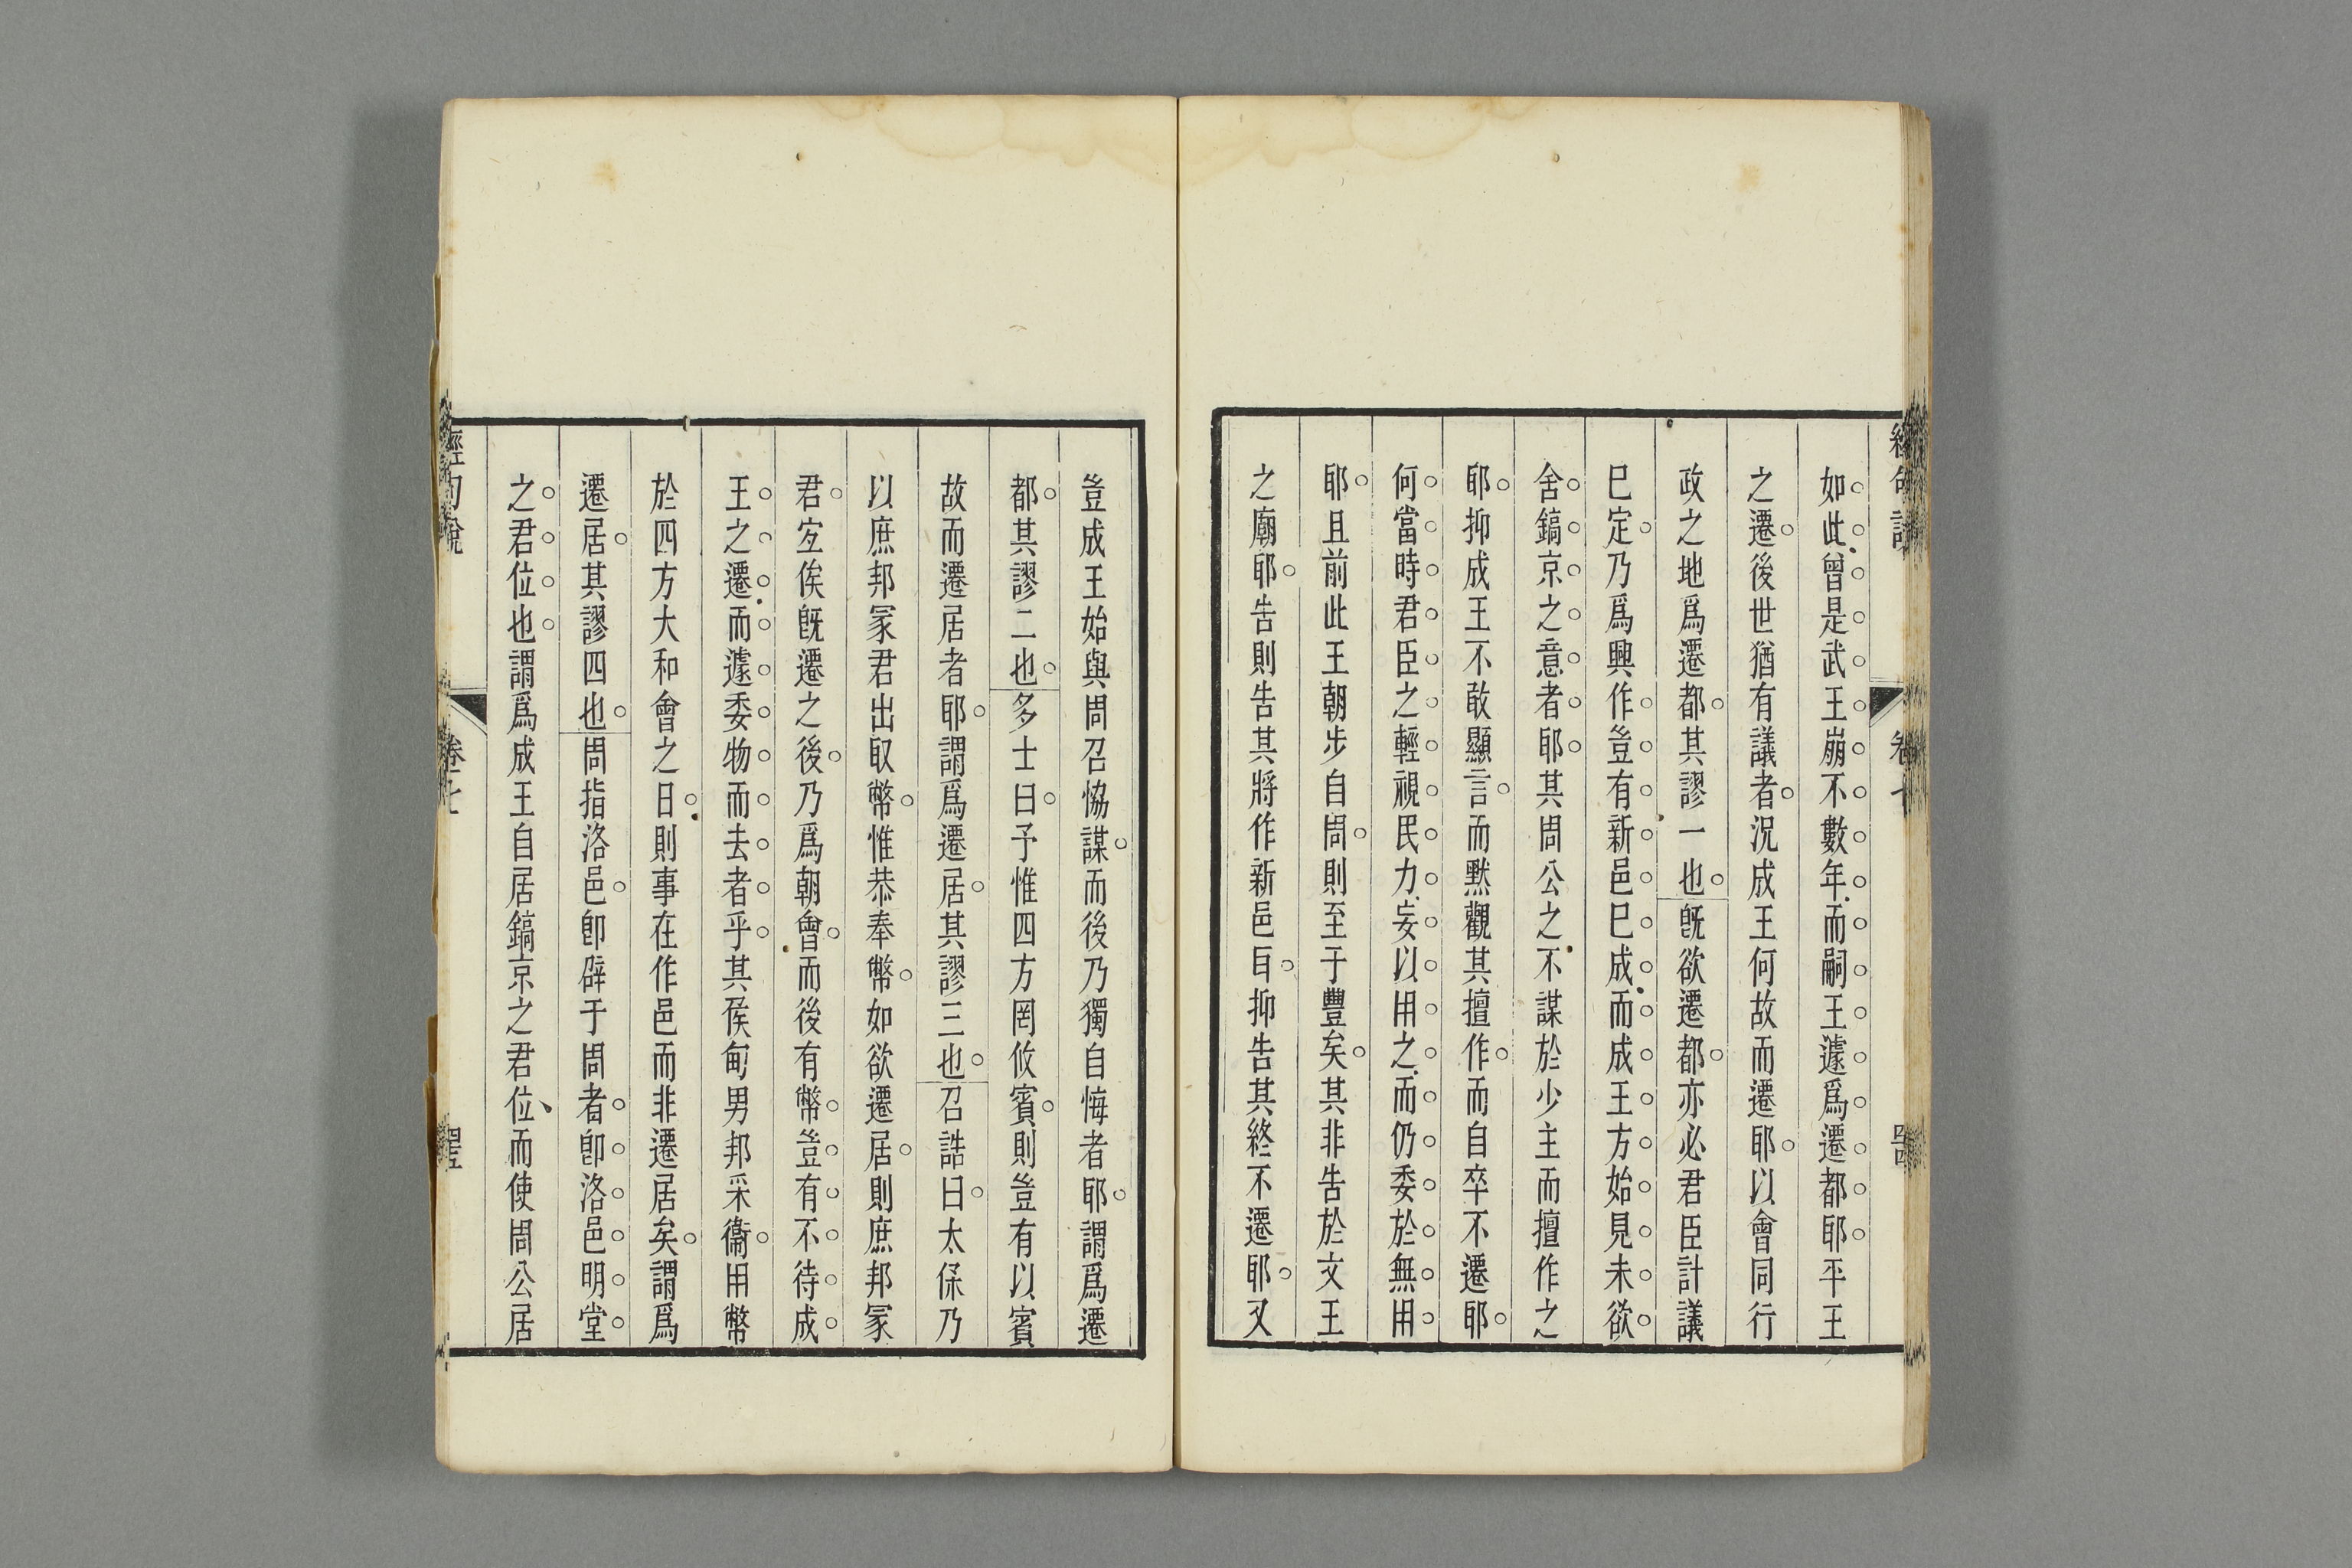 如此曾是武王崩不數年而嗣王遽爲遷都耶平王
之遷後世猶有議者況成王何故而遷耶以會同行
政之地爲遷都其謬一也旣欲遷都亦必君臣計議
巳定乃爲興作豈有新邑巳成而成王方始見未欲
舍鎬京之意者耶其周公之不謀於少主而擅作之
耶抑成王不敢顯言而默觀其擅作而自卒不遷耶
何當時君臣之輕視民力妄以用之而仍委於無用
耶且前此王朝步自周則至于豐矣其非告於文王
之廟耶告則告其將作新邑㠯抑告其終不遷耶又
豈成王始與周召恊謀而後乃獨自悔者耶謂爲遷
都其謬二也多士曰予惟四方罔攸賓則豈有以賓
故而遷居者耶謂爲遷居其謬三也召誥曰太保乃
以庶邦冢君出取幣惟恭奉幣如欲遷居則庶邦冢
君宐俟旣遷之後乃爲朝會而後有幣豈有不待成
王之遷而遽委物而去者乎其侯甸男邦采衞用幣
於四方大和會之日則事在作邑而非遷居矣謂爲
遷居其謬四也周指洛邑卽辟于周者卽洛邑明堂
之君位也謂爲成王自居鎬京之君位而使周公居
經句說
卷七